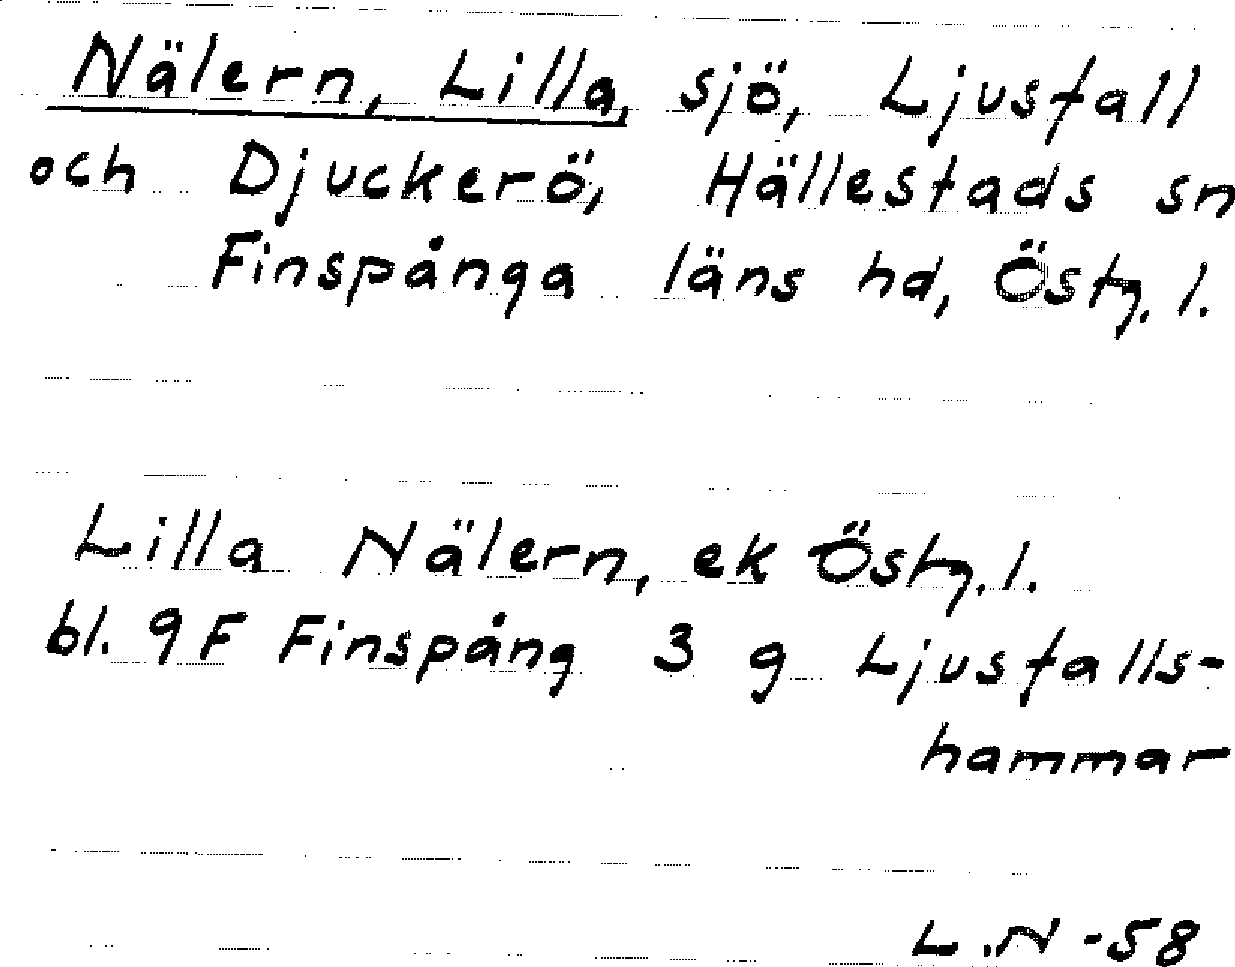 Nälern, Lilla, sjö, Ljusfall
och Djuckerö, Hällestads sn
Finspånga läns hd, Östg. l.
Lilla Nälern, ek Östg. l.
bl. 9F Finspång 3 g Ljusfalls-
hammar
L.N -58